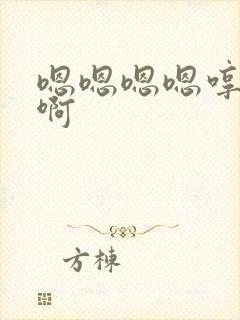 嗯嗯嗯嗯哼
啊
方栋